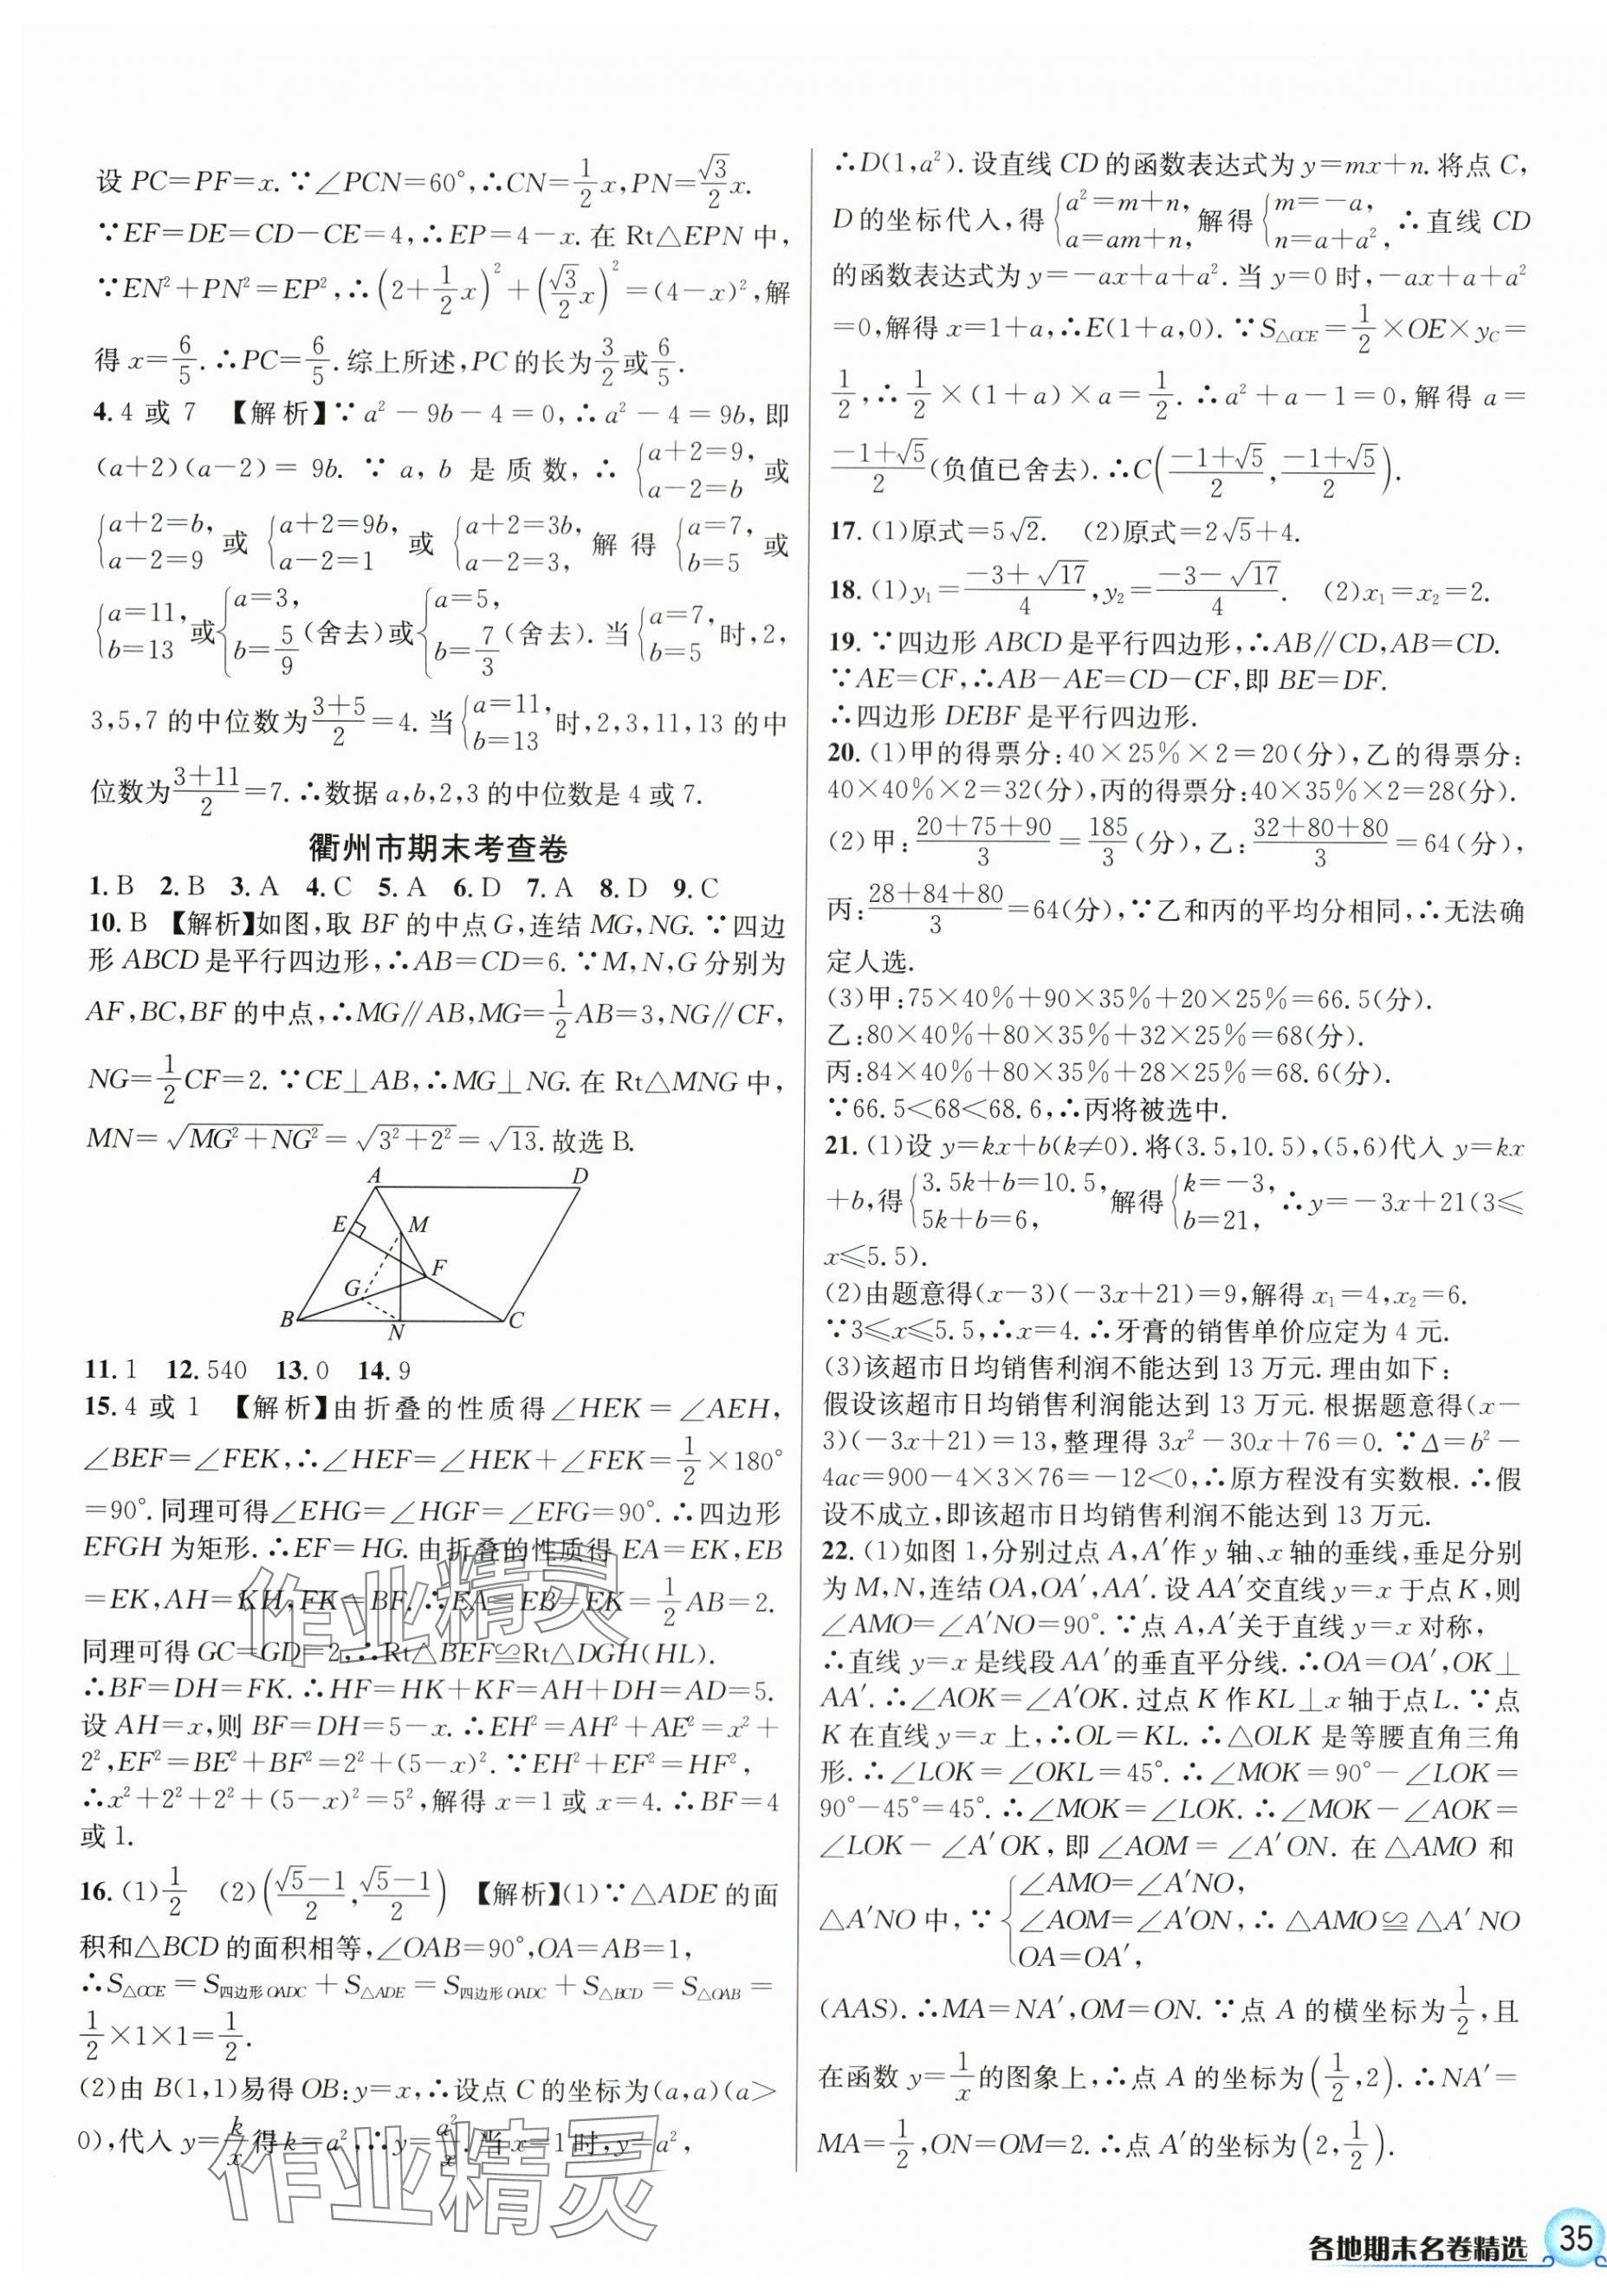 设 PC=PF=x.∵∠PCN=60°,∴CN=1/2x,PN=√3/2x.
∵EF=DE=CD-CE=4,∴EP=4-x.在 Rt△EPN 中,
∵EN²+PN²=EP²,∴(2+1/2x)²+(√3/2x)²=(4-x)²,解
得 x=6/5.∴PC=6/5.综上所述,PC的长为3/2或6/5.
4.4 或 7 【解析】∵a²-9b-4=0,∴a²-4=9b,即
(a+2)(a-2)=9b. ∵ a, b 是质数, ∴ {a+2=9, a-2=b 或
{a+2=b, a-2=9 或 {a+2=9b, a-2=1 或 {a+2=3b, a-2=3, 解得 {a=7, b=5 或
{a=11, b=13 或{a=3, b=5/9(舍去)或{a=5, b=7/3(舍去).当{a=7, b=5时,2,
3,5,7 的中位数为(3+5)/2=4.当{a=11, b=13时,2,3,11,13 的中
位数为(3+11)/2=7.∴数据 a,b,2,3 的中位数是 4 或 7.
衢州市期末考查卷
1.B 2.B 3.A 4.C 5.A 6.D 7.A 8.D 9.C
10.B 【解析】如图,取 BF 的中点G,连结 MG,NG.∵四边
形 ABCD 是平行四边形,∴AB=CD=6.∵M,N,G 分别为
AF,BC,BF 的中点,∴MG∥AB,MG=1/2AB=3,NG∥CF,
NG=1/2CF=2.∵CE⊥AB,∴MG⊥NG.在 Rt△MNG 中,
MN=√(MG²+NG²)=√(3²+2²)=√13.故选 B.
A D
E M
F
G
B N C
11.1 12.540 13.0 14.9
15.4 或 1 【解析】由折叠的性质得∠HEK=∠AEH,
∠BEF=∠FEK,∴∠HEF=∠HEK+∠FEK=1/2×180°
=90°.同理可得∠EHG=∠HGF=∠EFG=90°.∴四边形
EFGH 为矩形.∴EF=HG.由折叠的性质得 EA=EK,EB
=EK,AH=KH,FK=BF.∴EA=EB=EK=1/2AB=2.
同理可得 GC=GD=2,∴Rt△BEF≌Rt△DGH(HL).
∴BF=DH=FK.∴HF=HK+KF=AH+DH=AD=5.
设 AH=x,则 BF=DH=5-x.∴EH²=AH²+AE²=x²+
2²,EF²=BE²+BF²=2²+(5-x)².∵EH²+EF²=HF²,
∴x²+2²+2²+(5-x)²=5²,解得 x=1或 x=4.∴BF=4
或1.
16.(1)1/2 (2)((√5-1)/2,(√5-1)/2) 【解析】(1)∵△ADE的面
积和△BCD的面积相等,∠OAB=90°,OA=AB=1,
∴S△OCE=S四边形OADC+S△ADE=S四边形OADC+S△BCD=S△OAB=
1/2×1×1=1/2.
(2)由 B(1,1)易得 OB:y=x,∴设点 C 的坐标为(a,a)(a>
0),代入 y=k/x得 k=a²,∴y=a²/x.当 x=1时,y=a²,
∴D(1,a²).设直线 CD 的函数表达式为 y=mx+n.将点 C,
D 的坐标代入,得{a²=m+n, a=am+n,解得{m=-a, n=a+a²,∴直线 CD
的函数表达式为 y=-ax+a+a².当 y=0 时,-ax+a+a²
=0,解得 x=1+a,∴E(1+a,0).∵S△OCE=1/2×OE×yC=
1/2,∴1/2×(1+a)×a=1/2.∴a²+a-1=0,解得 a=
(-1+√5)/2(负值已舍去).∴C((-1+√5)/2,(-1+√5)/2).
17.(1)原式=5√2. (2)原式=2√5+4.
18.(1)y₁=(-3+√17)/4,y₂=(-3-√17)/4. (2)x₁=x₂=2.
19.∵四边形 ABCD 是平行四边形,∴AB∥CD,AB=CD.
∵AE=CF,∴AB-AE=CD-CF,即 BE=DF.
∴四边形 DEBF 是平行四边形.
20.(1)甲的得票分:40×25%×2=20(分),乙的得票分:
40×40%×2=32(分),丙的得票分:40×35%×2=28(分).
(2)甲:(20+75+90)/3=185/3(分),乙:(32+80+80)/3=64(分),
丙:(28+84+80)/3=64(分),∵乙和丙的平均分相同,∴无法确
定人选.
(3)甲:75×40%+90×35%+20×25%=66.5(分).
乙:80×40%+80×35%+32×25%=68(分).
丙:84×40%+80×35%+28×25%=68.6(分).
∵66.5<68<68.6,∴丙将被选中.
21.(1)设 y=kx+b(k≠0).将(3.5,10.5),(5,6)代入 y=kx
+b,得{3.5k+b=10.5, 5k+b=6,解得{k=-3, b=21,∴y=-3x+21(3≤
x≤5.5).
(2)由题意得(x-3)(-3x+21)=9,解得 x₁=4,x₂=6.
∵3≤x≤5.5,∴x=4.∴牙膏的销售单价应定为 4 元.
(3)该超市日均销售利润不能达到 13 万元.理由如下:
假设该超市日均销售利润能达到 13 万元.根据题意得(x-
3)(-3x+21)=13,整理得 3x²-30x+76=0.∵Δ=b²-
4ac=900-4×3×76=-12<0,∴原方程没有实数根.∴假
设不成立,即该超市日均销售利润不能达到 13 万元.
22.(1)如图 1,分别过点 A,A′作 y 轴、x 轴的垂线,垂足分别
为 M,N,连结 OA,OA′,AA′.设 AA′交直线 y=x 于点 K,则
∠AMO=∠A′NO=90°.∵点 A,A′关于直线 y=x 对称,
∴直线 y=x 是线段 AA′的垂直平分线.∴OA=OA′,OK⊥
AA′.∴∠AOK=∠A′OK.过点 K 作 KL⊥x 轴于点 L.∵点
K 在直线 y=x 上,∴OL=KL.∴△OLK 是等腰直角三角
形.∴∠LOK=∠OKL=45°.∴∠MOK=90°-∠LOK=
90°-45°=45°.∴∠MOK=∠LOK.∴∠MOK-∠AOK=
∠LOK-∠A′OK,即∠AOM=∠A′ON.在△AMO 和
△A′NO 中,∵{∠AMO=∠A′NO, ∠AOM=∠A′ON, OA=OA′, ∴△AMO≌△A′NO
(AAS).∴MA=NA′,OM=ON.∵点 A 的横坐标为1/2,且
在函数 y=1/x的图象上,∴点 A 的坐标为(1/2,2).∴NA′=
MA=1/2,ON=OM=2.∴点 A′的坐标为(2,1/2).
作业精灵
作业精灵
各地期末名卷精选 35